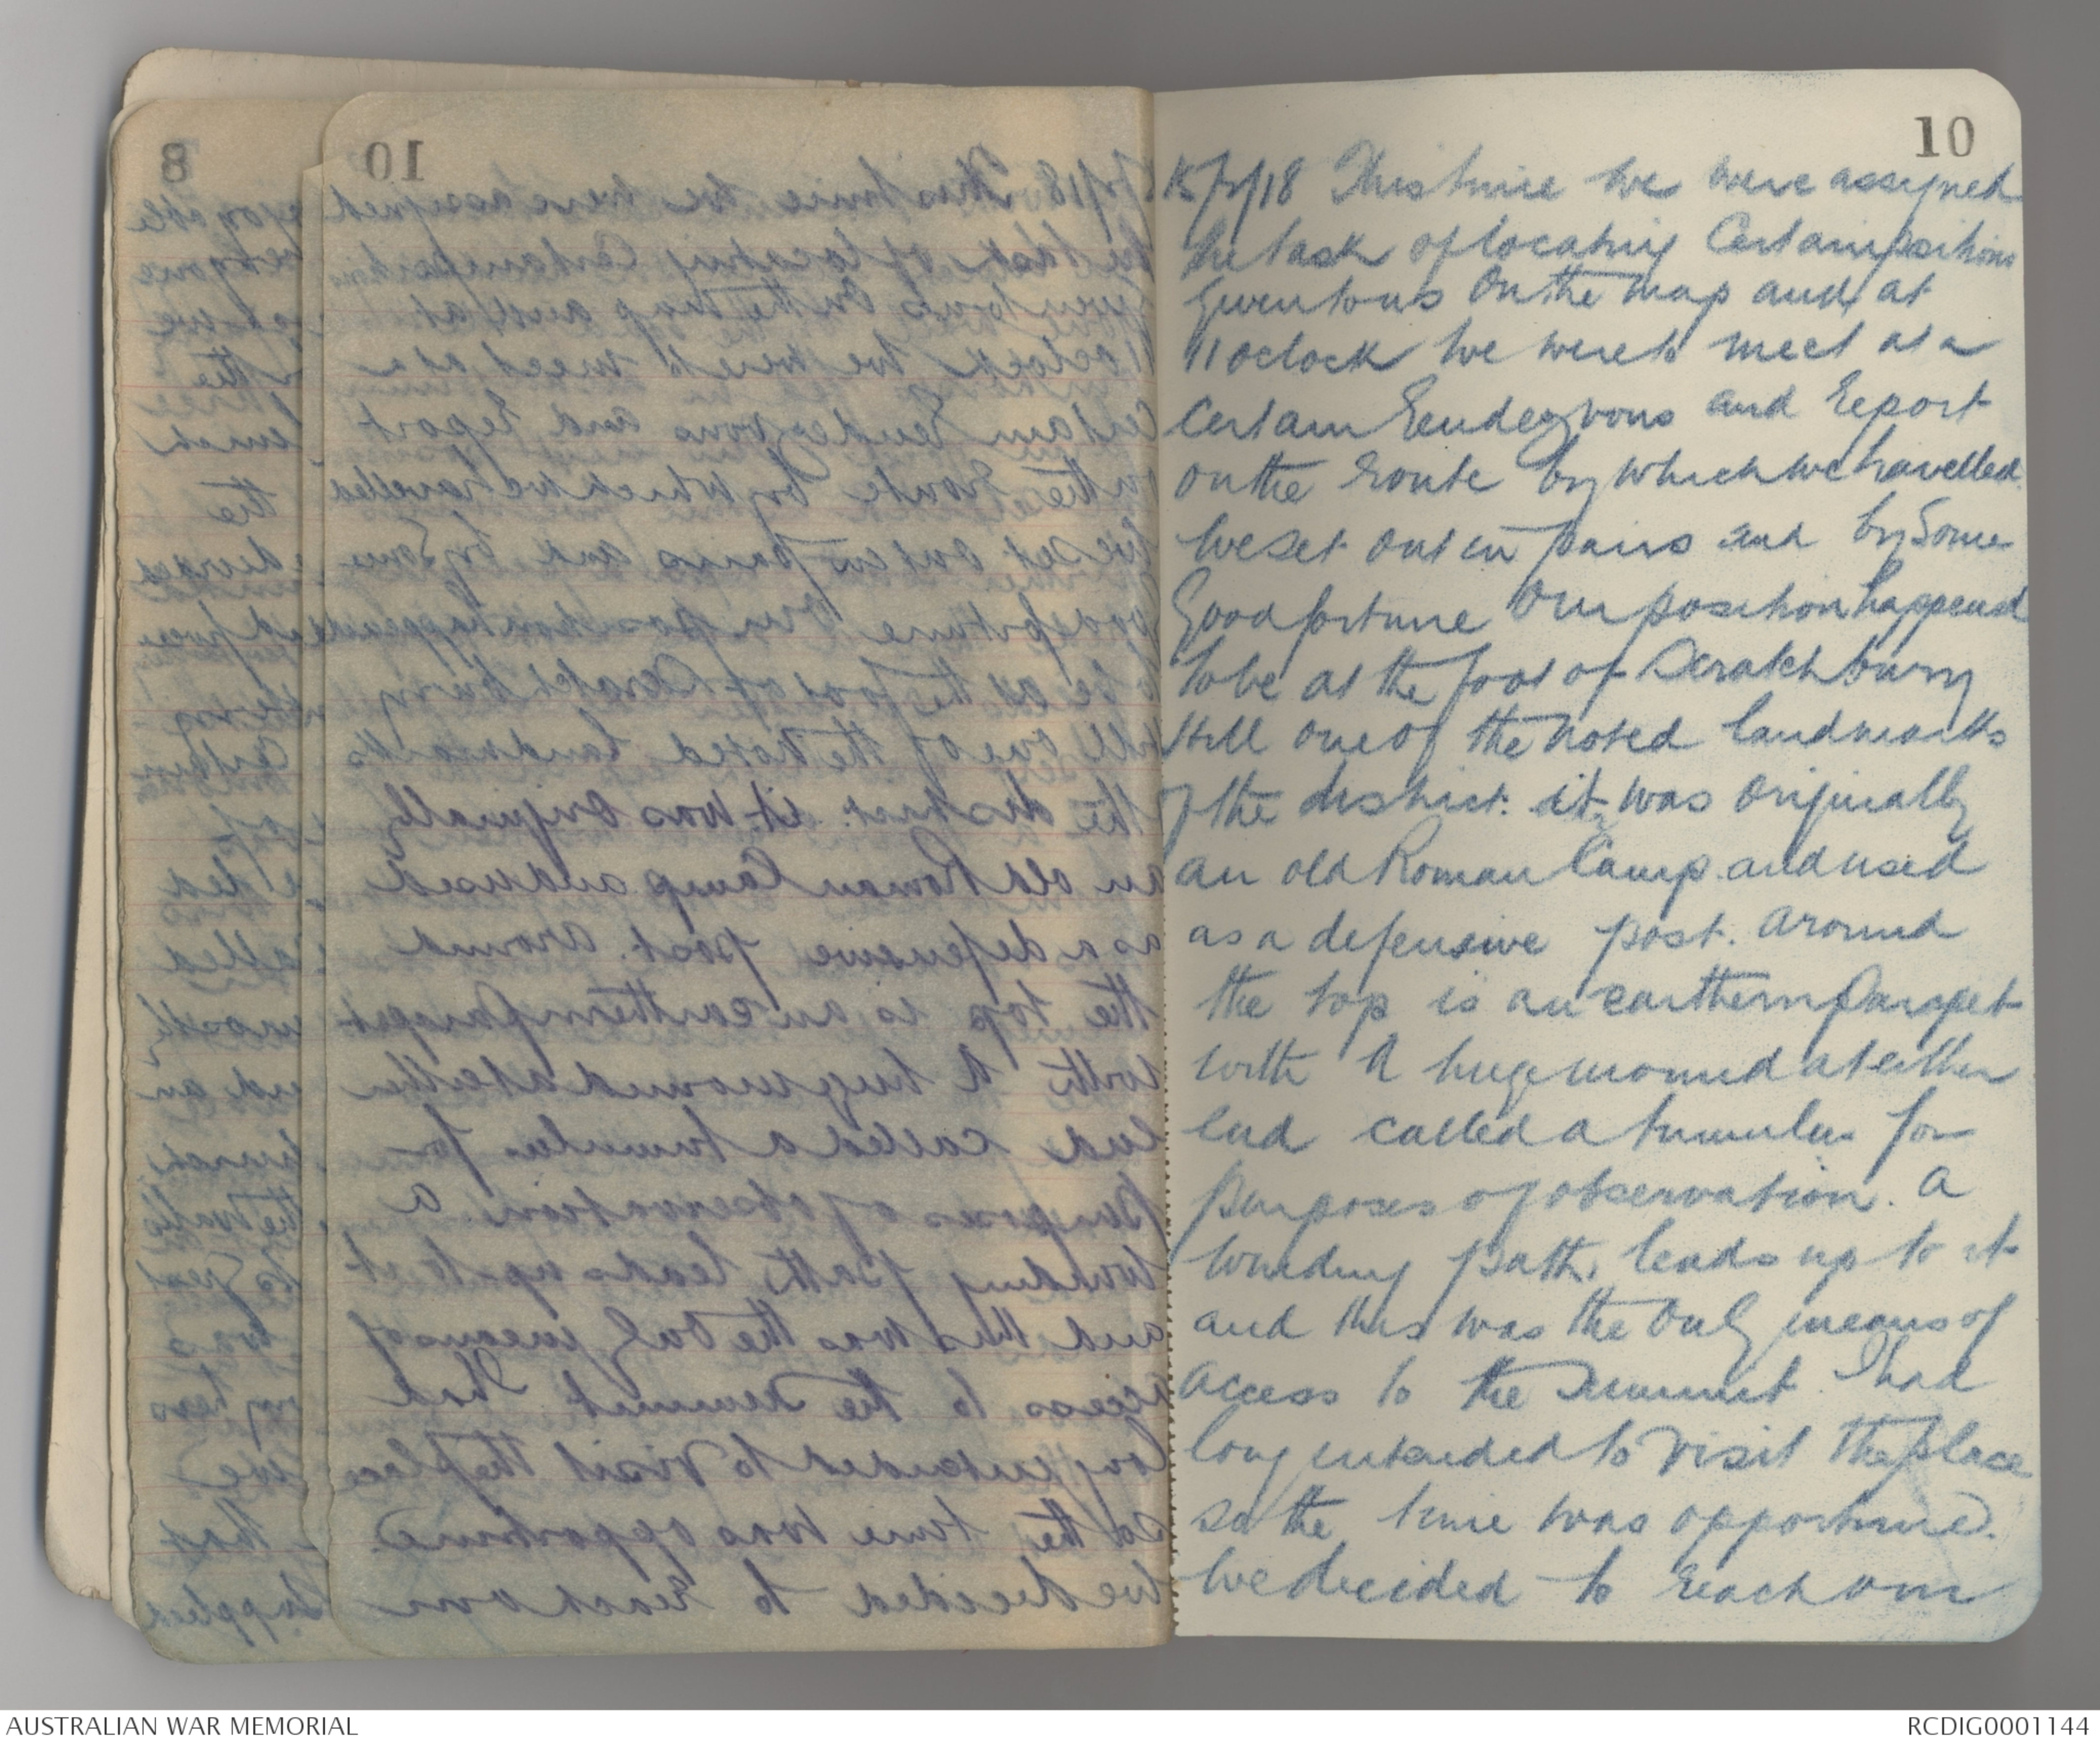 10
15/7/18 This time we were assigned
the task of locating Certain positions
given to us On the map and at
11 oclock we were to meet at a
Certain Rendezvous and Report
on the Route by which we travelled.
We set out in pairs and by Some
Good fortune Our position happened
to be at the foot of Scratchbury
Hill one of the noted landmarks
of the district. it was Originally
an old Roman Camp. and used
as a defensive post. Around
the top is an earthern Parapet
with A huge mound at either
end called a tumulus for
purposes of observation. A
winding path, leads up to it
and this was the Only means of
access to the Summit. I had
long intended to visit the place
so the time was opportune.
We decided to reach our
AUSTRALIAN WAR MEMORIAL
RCDIG0001144